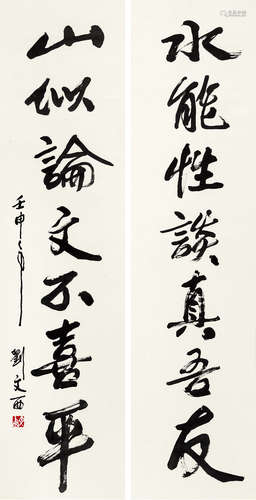 水能性談真吾友
山似論文不喜平
壬申年 劉文西